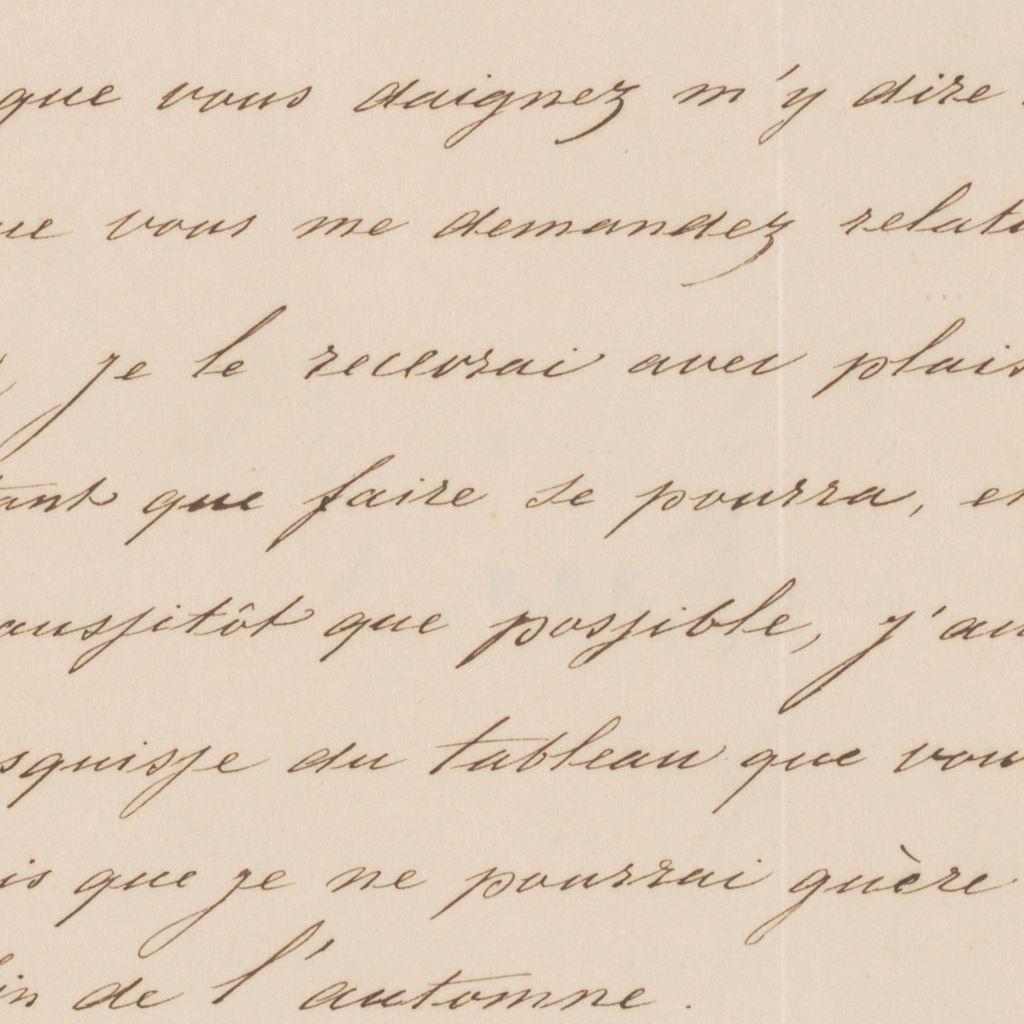 que vous daignez m'y dire
que vous me demandez relati
je le recevrai avec plais
tant que faire se pourra, et
aussitôt que possible, j'au
squisse du tableau que vou
is que je ne pourrai guère
fin de l'automne.